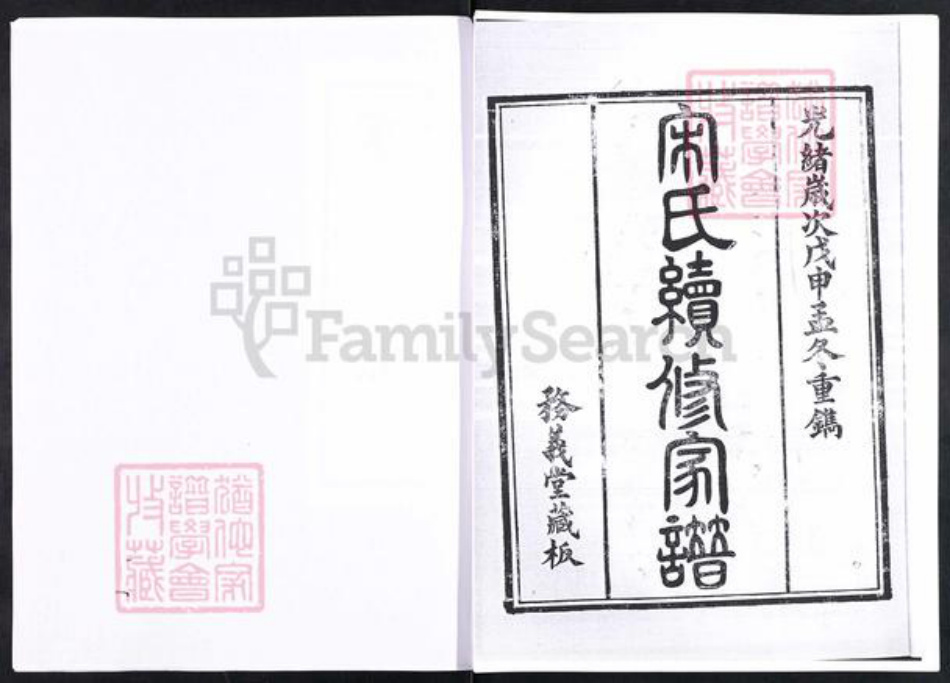 光緒歲次戊申孟冬重鐫
宋氏續修家譜
務義堂藏板
FamilySearch
譜學會
收藏
譜學會
收藏